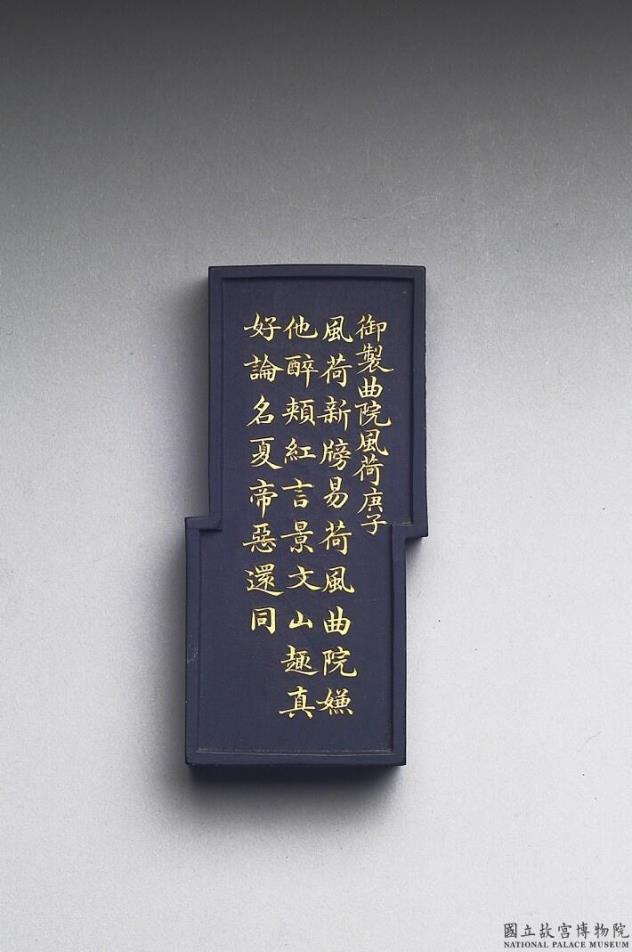 御製曲院風荷庚子
風荷新牓易荷風曲院嫌
他醉頰紅言景文山趣真
好論名夏帝惡還同
國立故宮博物院
NATIONAL PALACE MUSEUM